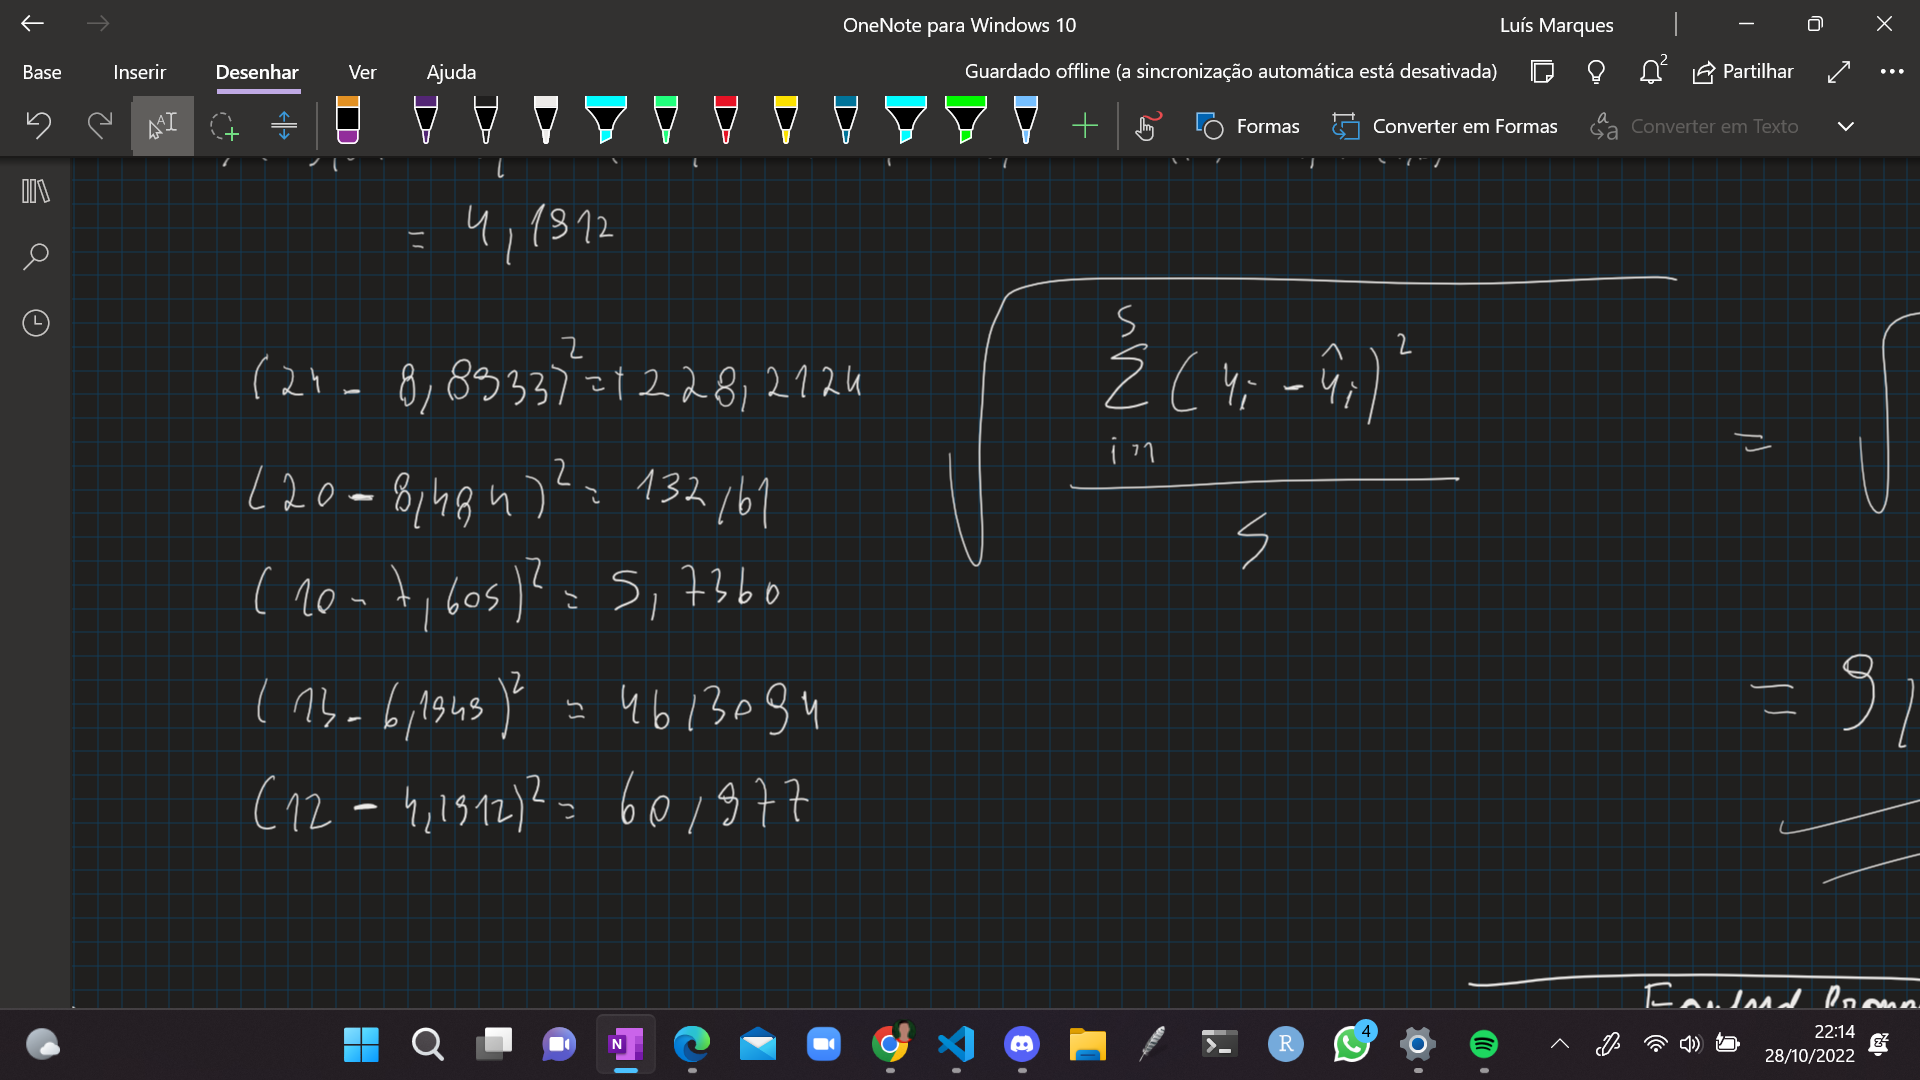 OneNote para Windows 10
Luís Marques
Base Inserir Desenhar Ver Ajuda
Guardado offline (a sincronização automática está desativada)
2
Partilhar
Formas
Converter em Formas
Converter em Texto
= 4,1912
(24 - 8,8933)² = +228,2124
(20 - 8,484)² = 132,61
(10 - 7,605)² = 5,7360
(13 - 6,1949)² = 46,3094
(12 - 4,1912)² = 60,977
5
∑ (yi - ŷi)²
i=1
5
=
= 9,
4
22:14
28/10/2022